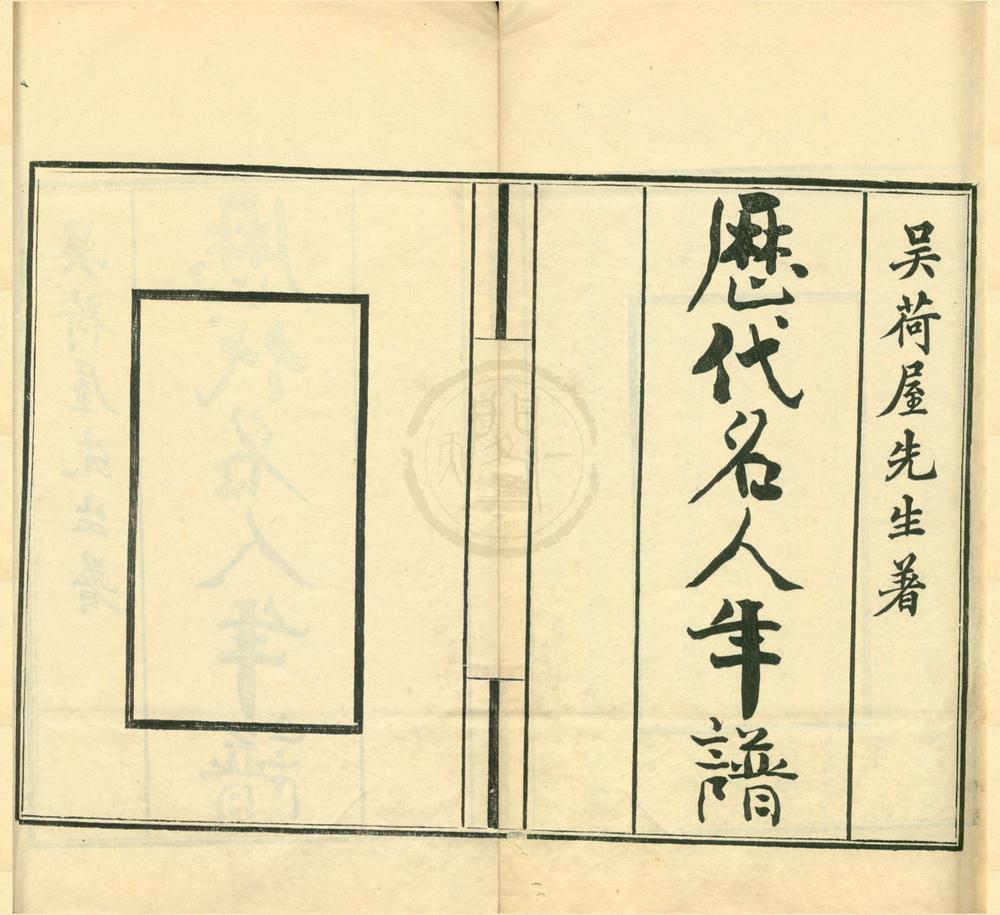 吴荷屋先生著
歷代名人年譜